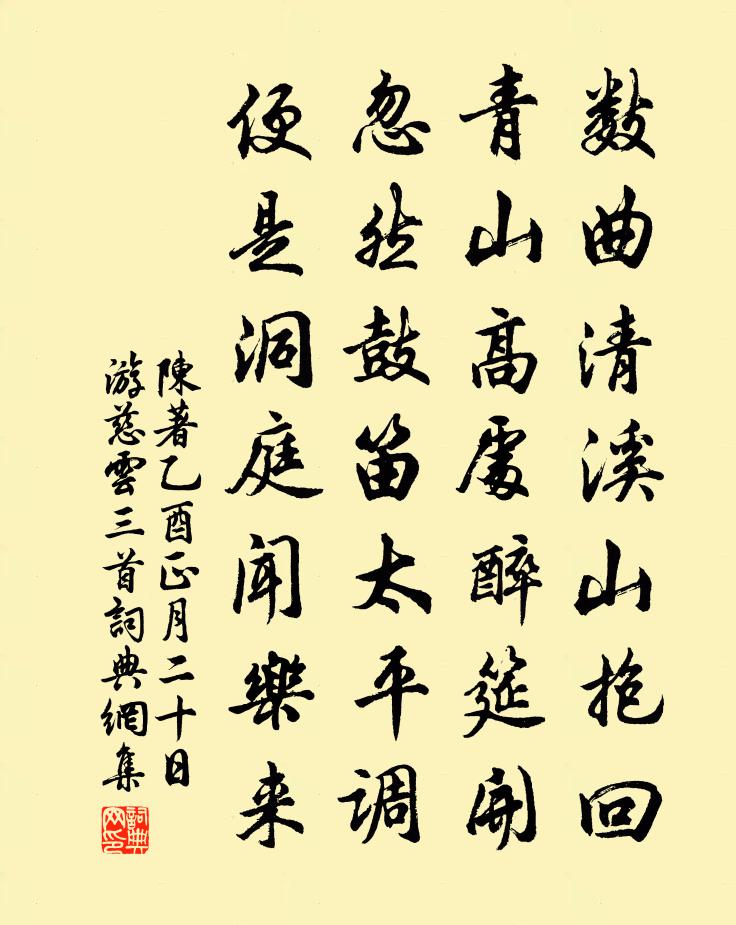 数曲清溪山抱回
青山高處醉筵開
忽然鼓笛太平調
便是洞庭聞樂来
陳著乙酉正月二十日
游慈雲三首詞典網集
詞典網印